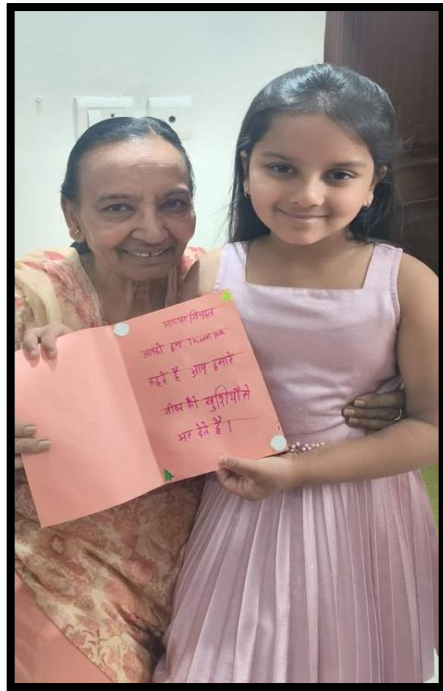 आपको हम Thank you
कहते है आप हमारे
जीवन को खुशियों से
भर देते है।